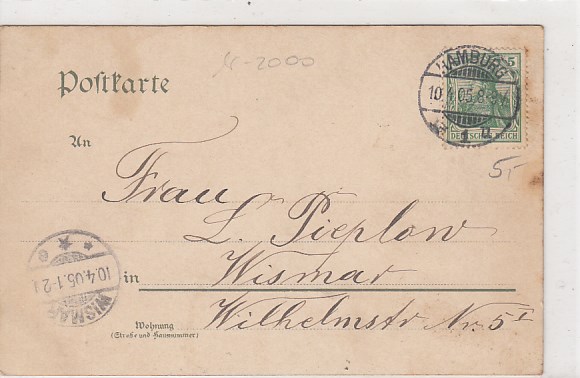 2000
Poſtkarte
HAMBURG
10.4.05.8-9V.
* 1 u
5
DEUTSCHES REICH
5,-
An
Frau
L. Pieplow
in Wismar
Wohnung
(Straße und Hausnummer)
Wilhelmstr Nr. 5 I
WISMAR
10.4.05.1-2N